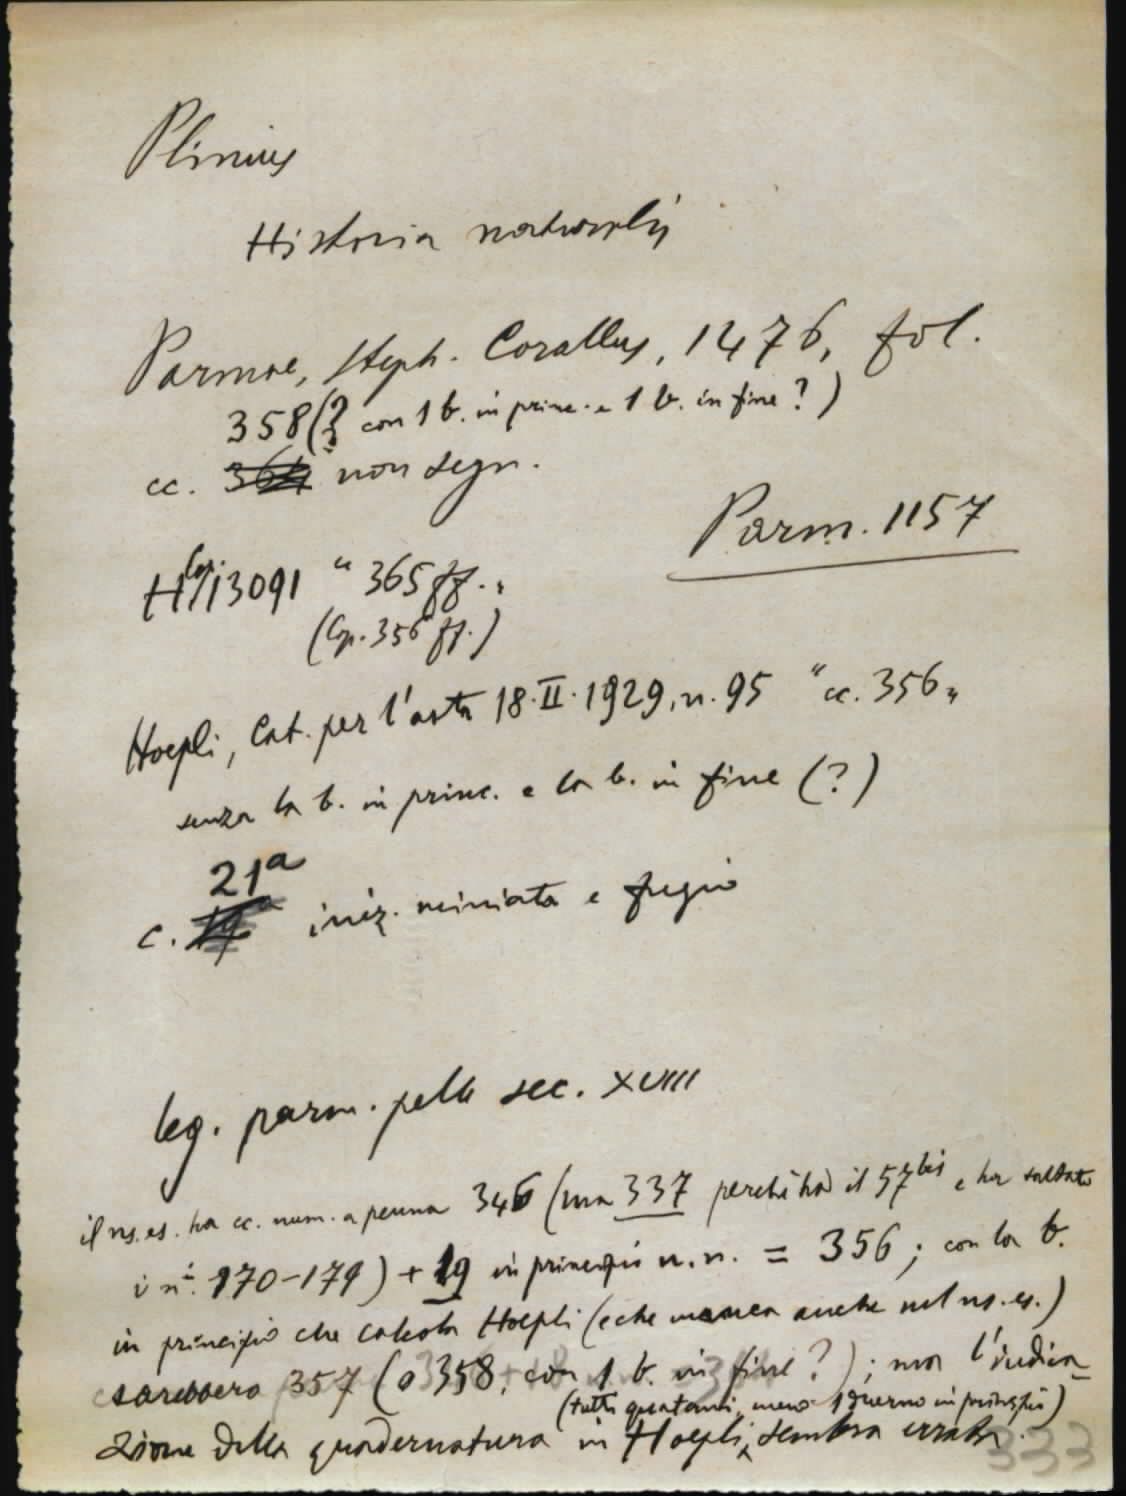 Plinius
Historia naturalis
Parmae, Steph. Corallus, 1476, fol.
358 (? con 1 b. in princ. e 1 b. in fine?)
cc. 364 non segn.
Parm. 1157
H Cop. 13091 "365 ff."
(Cop. 356 ff.)
Hoepli, Cat. per l'asta 18.II.1929, n. 95 "cc. 356"
senza la b. in princ. e la b. in fine (?)
21a
c. iniz. miniata e fregio
leg. parm. pelle sec. XVIII
il ns. es. ha cc. num. a penna 346 (ma 337 perchè ha il 57bis e ha saltato
i ni. 170-179) + 19 in principio n.n. = 356; con la b.
in principio che calcola Hoepli (e che manca anche nel ns. es.)
sarebbero 357 (o 358, con 1 b. in fine?); ma l'indica-
(tutti quaterni, meno 1 in principio)
zione della quadernatura in Hoepli sembra errata.
333